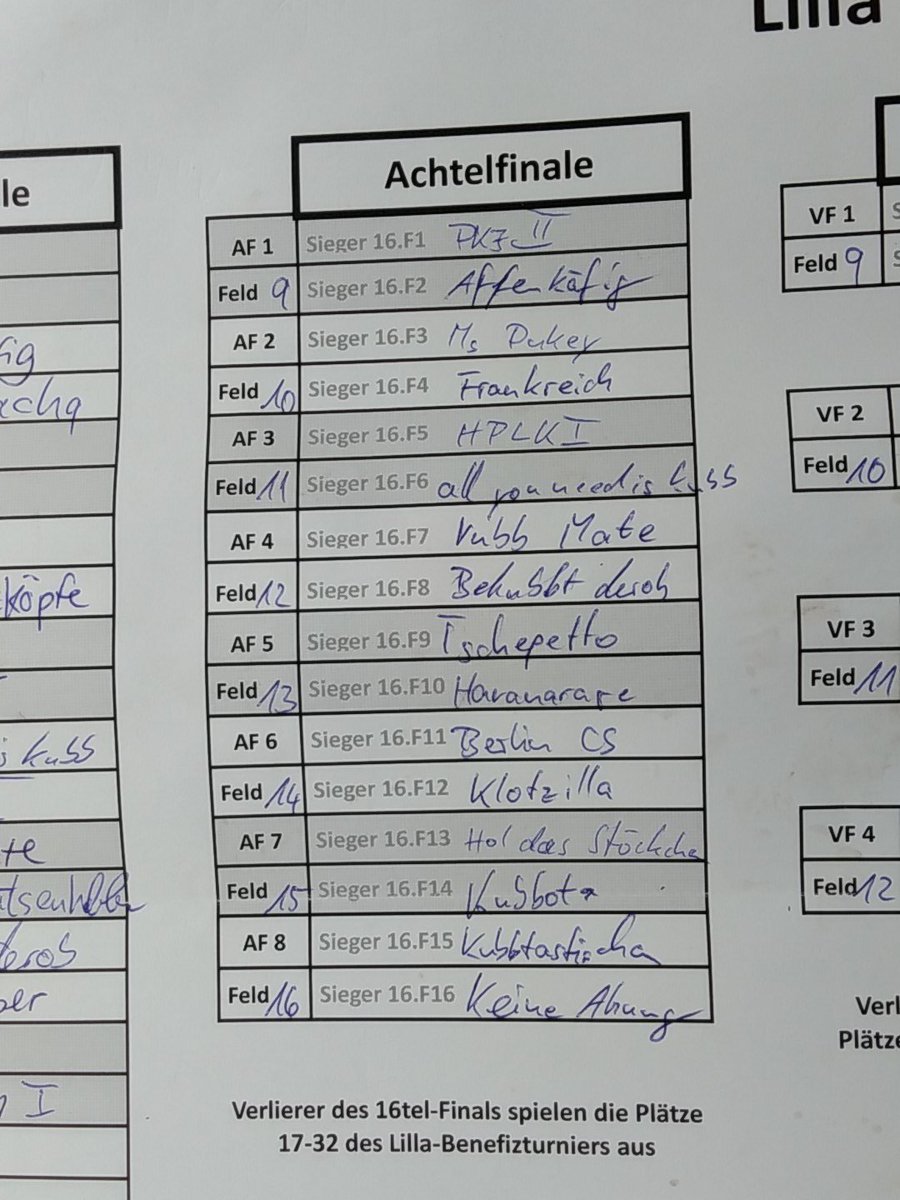 Lilla
le
Achtelfinale
AF 1 Sieger 16.F1 PKF II
Feld 9 Sieger 16.F2 Affenkäfig
AF 2 Sieger 16.F3 Ms Pukey
Feld 10 Sieger 16.F4 Frankreich
AF 3 Sieger 16.F5 HPLK I
Feld 11 Sieger 16.F6 all you need is kuss
AF 4 Sieger 16.F7 Kubb Mate
Feld 12 Sieger 16.F8 Bekubbt derob
AF 5 Sieger 16.F9 Tschepetto
Feld 13 Sieger 16.F10 Havanarage
AF 6 Sieger 16.F11 Berlin CS
Feld 14 Sieger 16.F12 Klotzilla
AF 7 Sieger 16.F13 Hol das Stöckche
Feld 15 Sieger 16.F14 Kubbota
AF 8 Sieger 16.F15 Kubbtastischa
Feld 16 Sieger 16.F16 Keine Ahnung
köpfe
kuss
te
derob
I
VF 1
Feld 9
VF 2
Feld 10
VF 3
Feld 11
VF 4
Feld 12
Verl
Plätze
Verlierer des 16tel-Finals spielen die Plätze
17-32 des Lilla-Benefizturniers aus